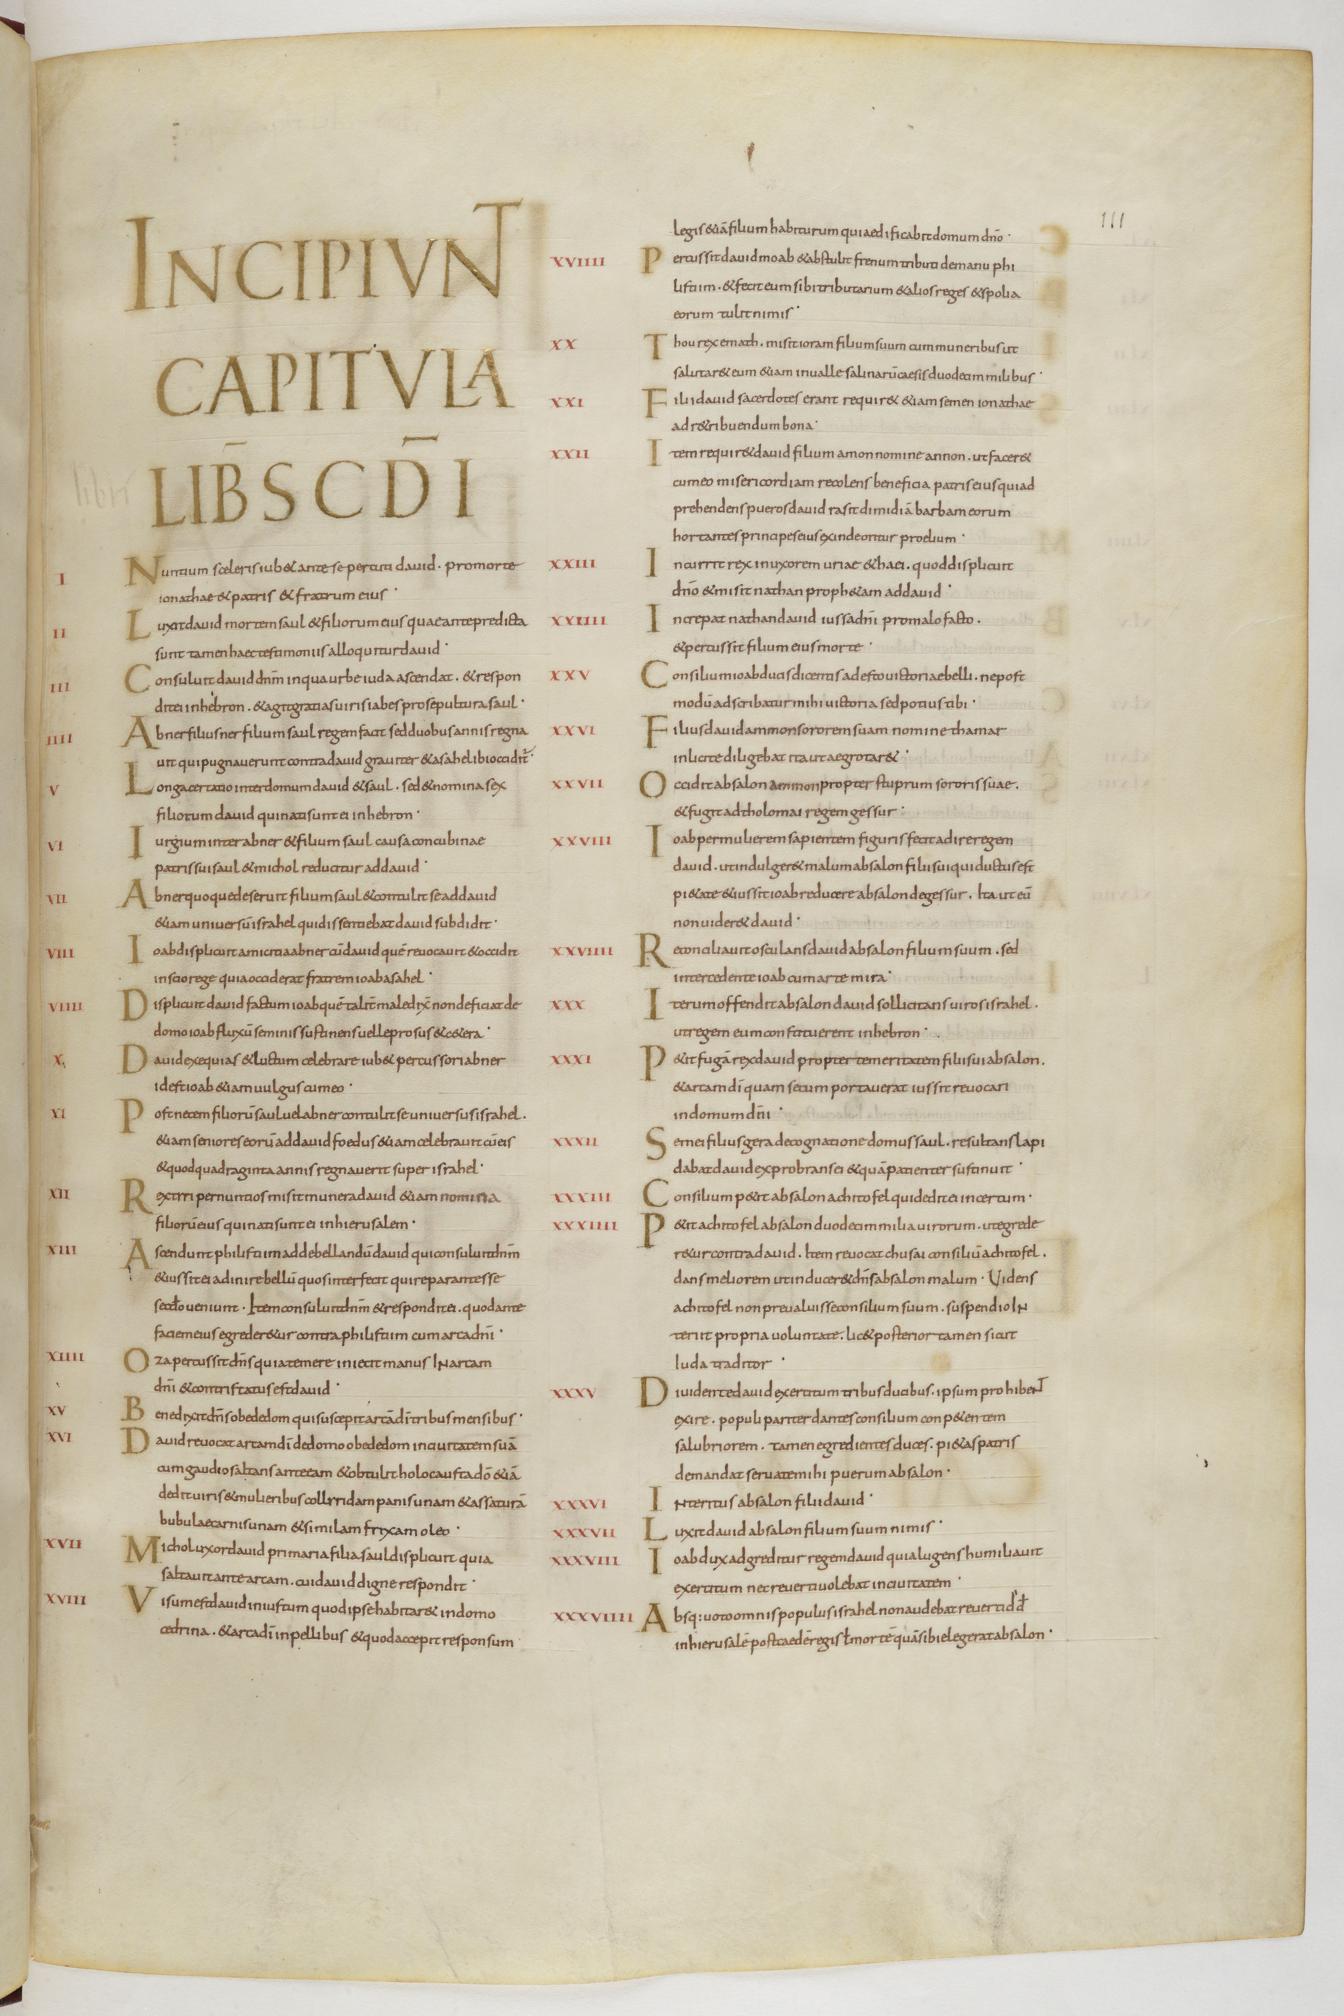 111
INCIPIUNT
CAPITULA
LIB̄ SCD̄I
libri
I Nuntium sceleris iub& ante se percuti david. pro morte
ionathae & patris & fratrum eius
II Luxit david mortem saul & filiorum eius quae ante predicta
sunt tamen haec testimoniis alloquitur david
III Consuluit david dnm̄ in qua urbe iuda ascendat. & respon
dit ei in hebron. & agit gratias uiris iabes pro sepultura saul
IIII Abner filius ner filium saul regem facit sed duobus annis regna
uit qui pugnauerunt contra david grauiter & asahel ibi occidit̄
V Longa certatio inter domum david & saul. sed & nomina sex
filiorum david qui nati sunt ei in hebron
VI Iurgium inter abner & filium saul causa concubinae
patris sui saul & michol reducitur ad david
VII Abner quoque deseruit filium saul & contulit se ad david
&iam uniuersū israhel qui dissentiebat david subdidit
VIII Ioab displicuit amicitia abner cū david quē reuocauit & occidit
inscio rege quia occiderat fratrem ioab asahel
VIIII Displicuit david factum ioab quē talit̄ maledix̄ non deficiat de
domo ioab fluxū seminis sustinens uel leprosus & c&era
X David exequias & luctum celebrare iub& percussori abner
id est ioab &iam uulgus cum eo
XI Post necem filiorū saul uel abner contulit se uniuersus israhel.
&iam seniores eorū ad david foedus &iam celebrauit cū eis
& quod quadraginta annis regnauerit super israhel
XII Rex tirri per nuntios misit munera david &iam nomina
filiorū eius qui nati sunt ei in hierusalem
XIII Ascendunt philistiim ad debellandū david qui consuluit dnm̄
& iussit ei adiri rebellū quos interfecit qui reparantes se
secdo ueniunt. Item consuluit dnm̄ & respondit ei. quod ante
faciem eius egreder&ur contra philistiim cum arca dni̅
XIIII Oza percussit dns̄ quia temere iniecit manus IN arcam
dni̅ & contristatus est david
XV Benedixit dns̄ obededom qui suscepit arcā di̅ tribus mensibus
XVI David reuocat arcam di̅ de domo obededom in ciuitatem suā
cum gaudio saltans ante eam & obtulit holocausta dō &iā
dedit uiris & mulieribus collyridam panis unam & assaturā
bubulae carnis unam & similam frixam oleo
XVII Michol uxor david primaria filia saul displicuit quia
saltauit ante arcam. cui david digne respondit
XVIII Visum est david iniustum quod ipse habitar& in domo
cedrina. & arca di̅ in pellibus & quod accepit responsum
legis &iā filium habiturum qui aedificabit domum dnō
XVIIII Percussit david moab & abstulit frenum tributi de manu phi
listiim. & fecit eum sibi tributarium & alios reges & spolia
eorum tulit nimis
XX Thou rex emath. misit ioram filium suum cum muneribus ut
salutar& eum &iam in ualle salinarū caesis duodecim milibus
XXI Filii david sacerdotes erant requir& &iam semen ionathae
ad r&ribuendum bona
XXII Item requir& david filium amon nomine annon. ut facer&
cum eo misericordiam recolens beneficia patris eius qui ad
prehendens pueros david rasit dimidiā barbam eorum
hortantes principes eius exinde oritur proelium
XXIII Incurrit rex in uxorem uriae & haei. quod displicuit
dnō & misit nathan proph&am ad david
XXIIII Increpat nathan david iussa dni̅ pro malo facto.
& percussit filium eius morte
XXV Consilium ioab ducis dicentis ad efto uictoriae belli. ne post
modū adscribatur mihi uictoria sed potius tibi
XXVI Filius david ammon sororem suam nomine thamar
inlicite diligebat ita ut aegrotar&
XXVII Occidit absalon ammon propter stuprum sororis suae.
& fugit ad tholomai regem gessur
XXVIII Ioab per mulierem sapientem figuris fecit adire regem
david. ut indulger& malum absalon filii sui qui ductus est
pi&ate & iussit ioab reducere absalon de gessur. Ita ut eū
non uider& david
XXVIIII Reconciliauit osculans david absalon filium suum. sed
intercedente ioab cum arte mira
XXX Iterum offendit absalon david sollicitans uiros israhel.
ut regem eum constituerent in hebron
XXXI P&it fugā rex david propter temeritatem filii sui absalon.
& arcam di̅ quam secum portauerat iussit reuocari
in domum dni̅
XXXII Semei filius gera de cognatione domus saul. resultans lapi
dabat david exprobrans ei & quā patienter sustinuit
XXXIII Consilium p&it absalon achitofel qui dedit ei incertum
XXXIIII P&it achitofel absalon duodecim milia uirorum. ut egrede
r&ur contra david. Item reuocat chusai consiliū achitofel.
dans meliorem ut inducer& dns̄ absalon malum. Videns
achitofel non preualuisse consilium suum. suspendio IN
teriit propria uoluntate. lic& posterior tamen sicut
Iuda traditor
XXXV Diuidente david exercitum tribus ducibus. ipsum prohibeNT
exire. populi pariter dantes consilium conp&entem
salubriorem. tamen egredientes duces. pi&as patris
demandat seruate mihi puerum absalon
XXXVI INteritus absalon filii david
XXXVII Luxit david absalon filium suum nimis
XXXVIII Ioab dux adgreditur regem david quia lugens humiliauit
exercitum nec reuerti uolebat in ciuitatem
XXXVIIII Absq: uoto omnis populus israhel non audebat reuerti d̄d̄
in hierusalē post caedē regis ł mortē quā sibi elegerat absalon